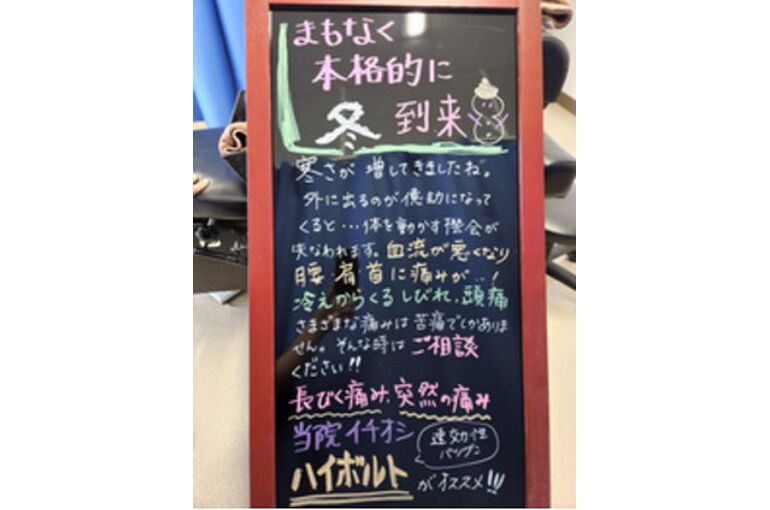 まもなく
本格的に
冬到来
寒さが増してきましたね。
外に出るのが億劫になって
くると…体を動かす機会が
失なわれます。血流が悪くなり
腰・肩首に痛みが…!
冷えからくるしびれ、頭痛
さまざまな痛みは苦痛でしかありま
せん。そんな時はご相談
ください!!
長びく痛み、突然の痛み
当院イチオシ
速効性
バツグン
ハイボルトがオススメ!!!